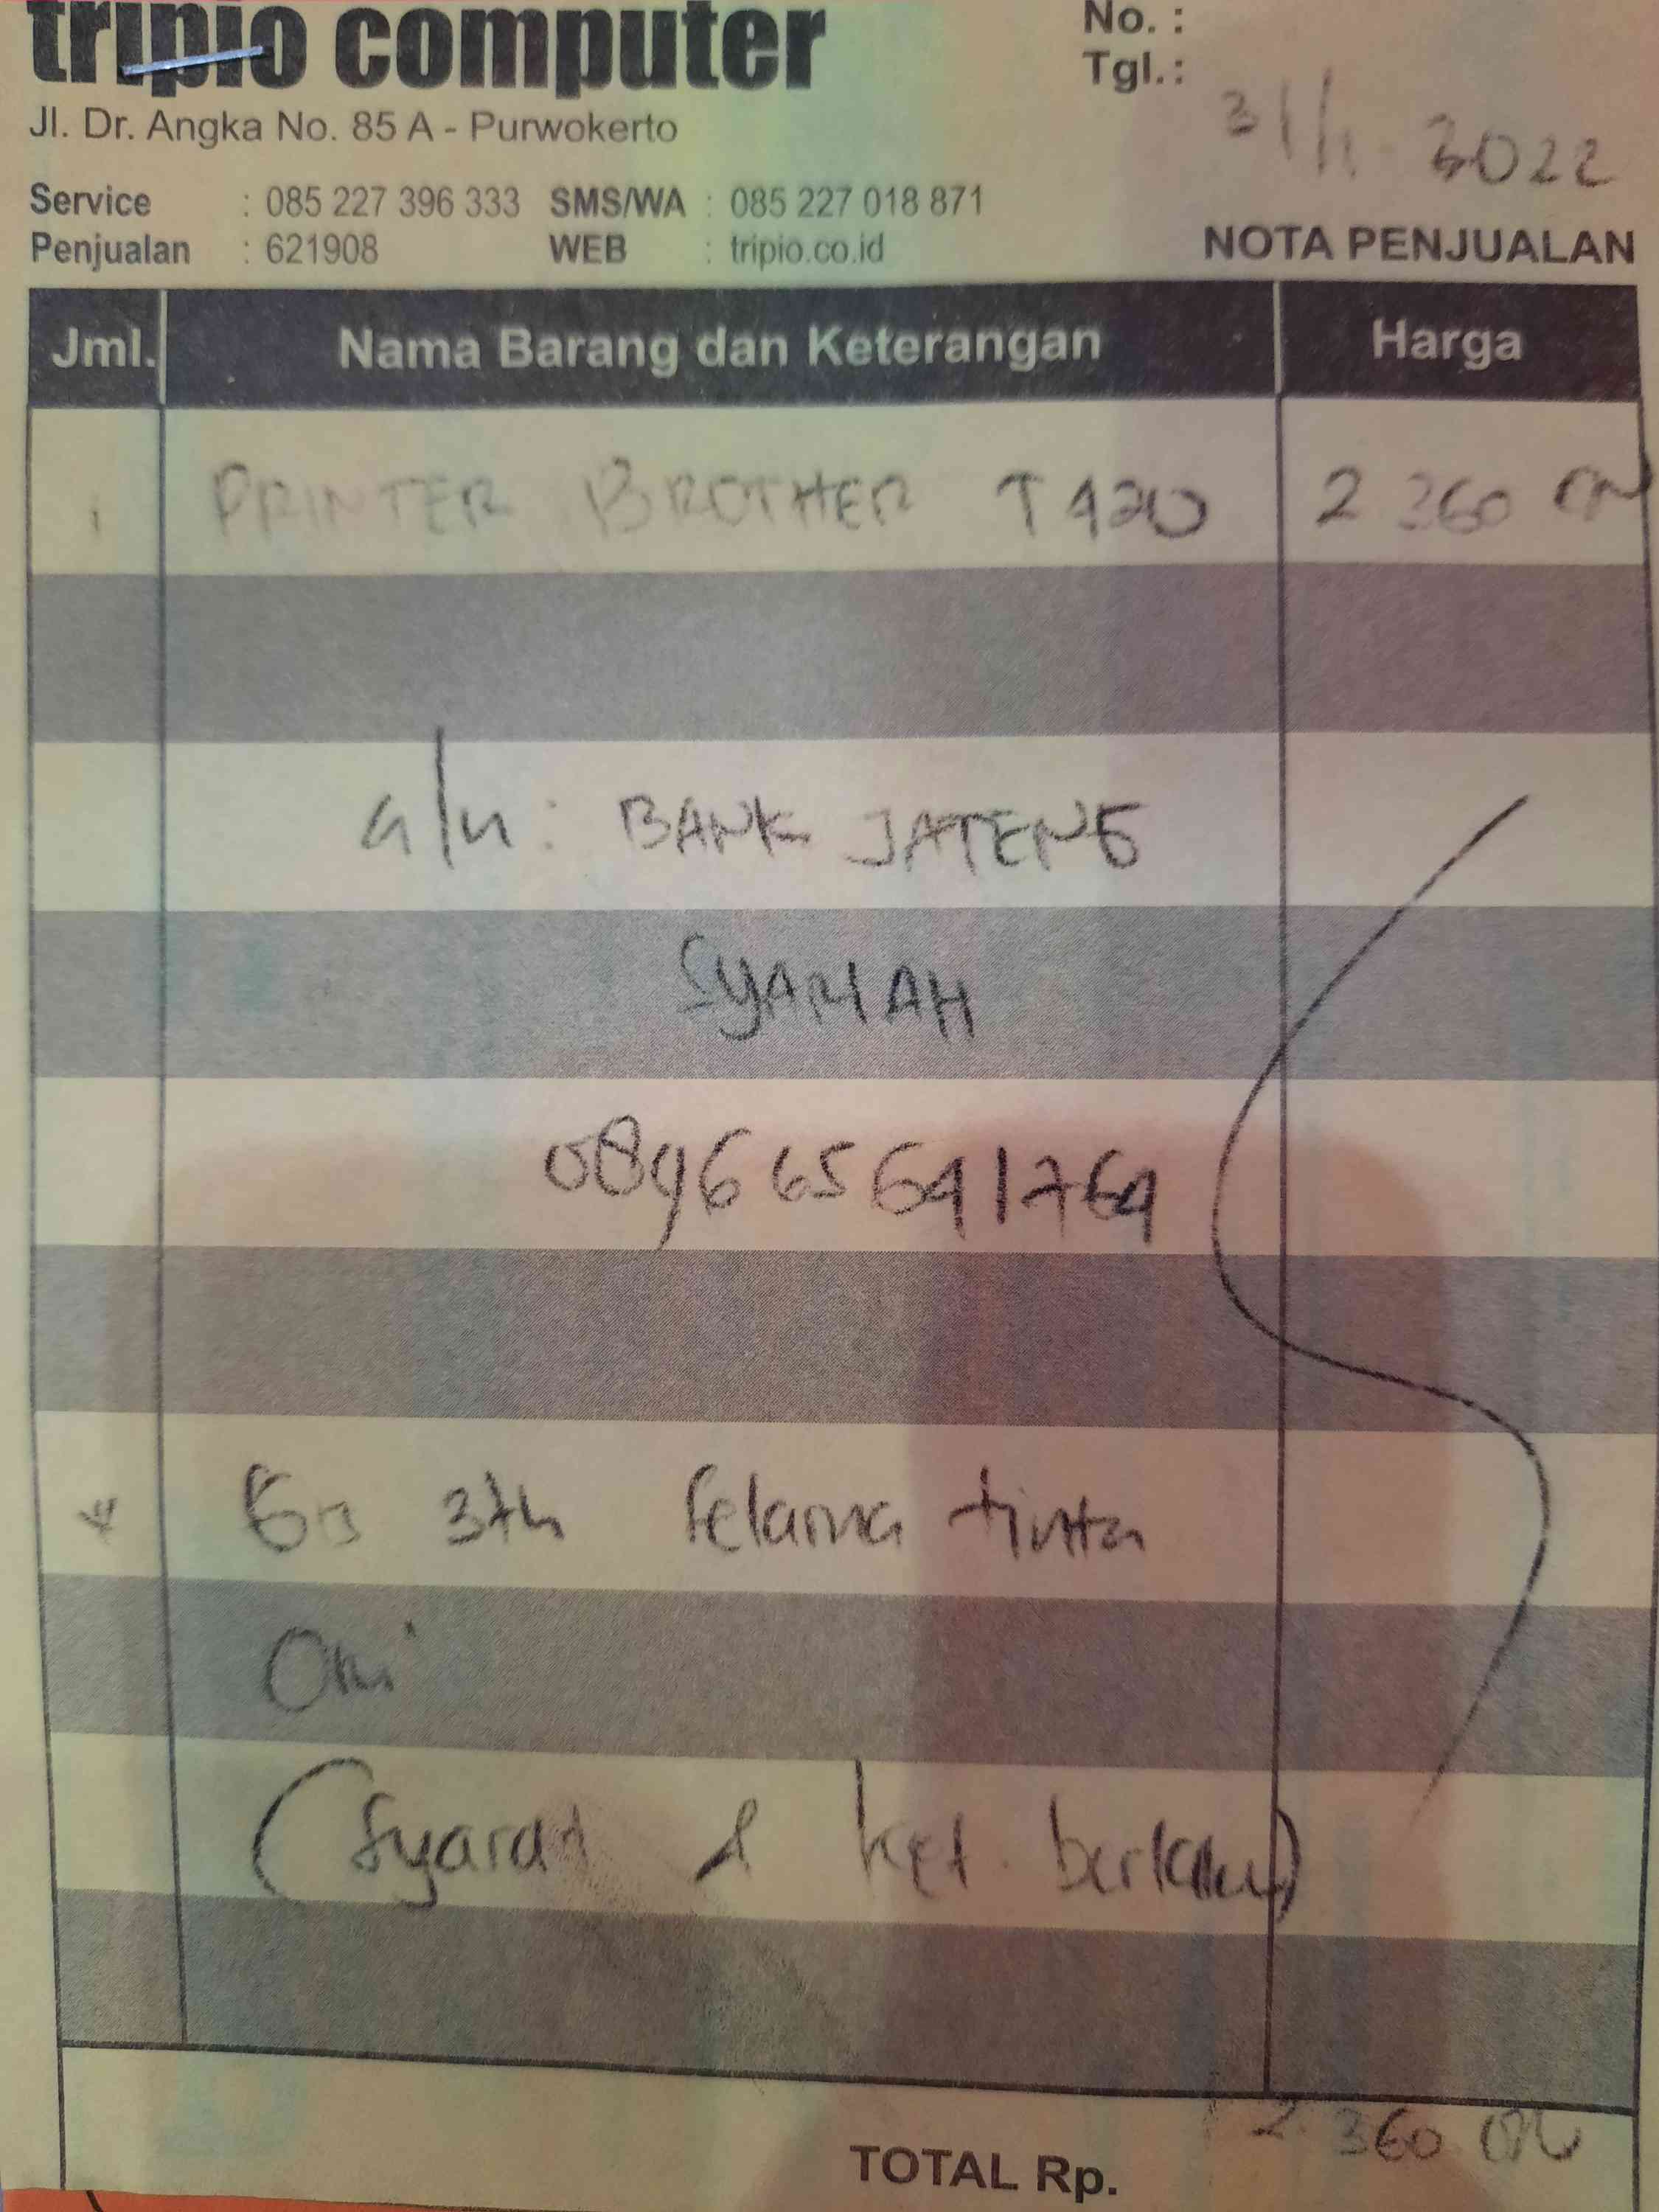 tripio computer
Jl. Dr. Angka No. 85 A - Purwokerto
Service : 085 227 396 333 SMS/WA : 085 227 018 871
Penjualan : 621908 WEB : tripio.co.id
No. :
Tgl.: 31/1 2022
NOTA PENJUALAN
Jml. Nama Barang dan Keterangan Harga
1 PRINTER BROTHER T420 2 360 000
a/n: BANK JATENG
SYARIAH
089665641764
* 3th selama tinta
Ori
(Syarat & ket. berlaku)
TOTAL Rp. 2 360 000